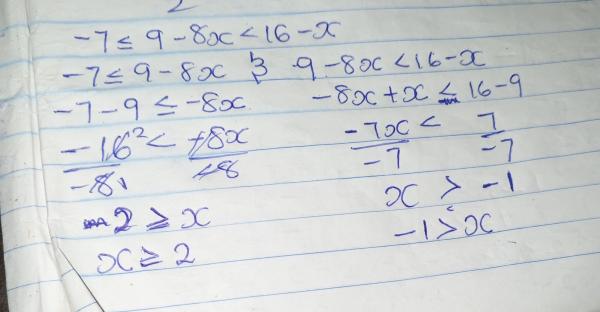 2
-7 ≤ 9 - 8x < 16 - x
-7 ≤ 9 - 8x } 9 - 8x < 16 - x
-7 - 9 ≤ -8x -8x + x ≤ 16 - 9
-16² < -8x -7x < 7
-8 -8 -7 -7
2 ≥ x x > -1
x ≥ 2 -1 > x